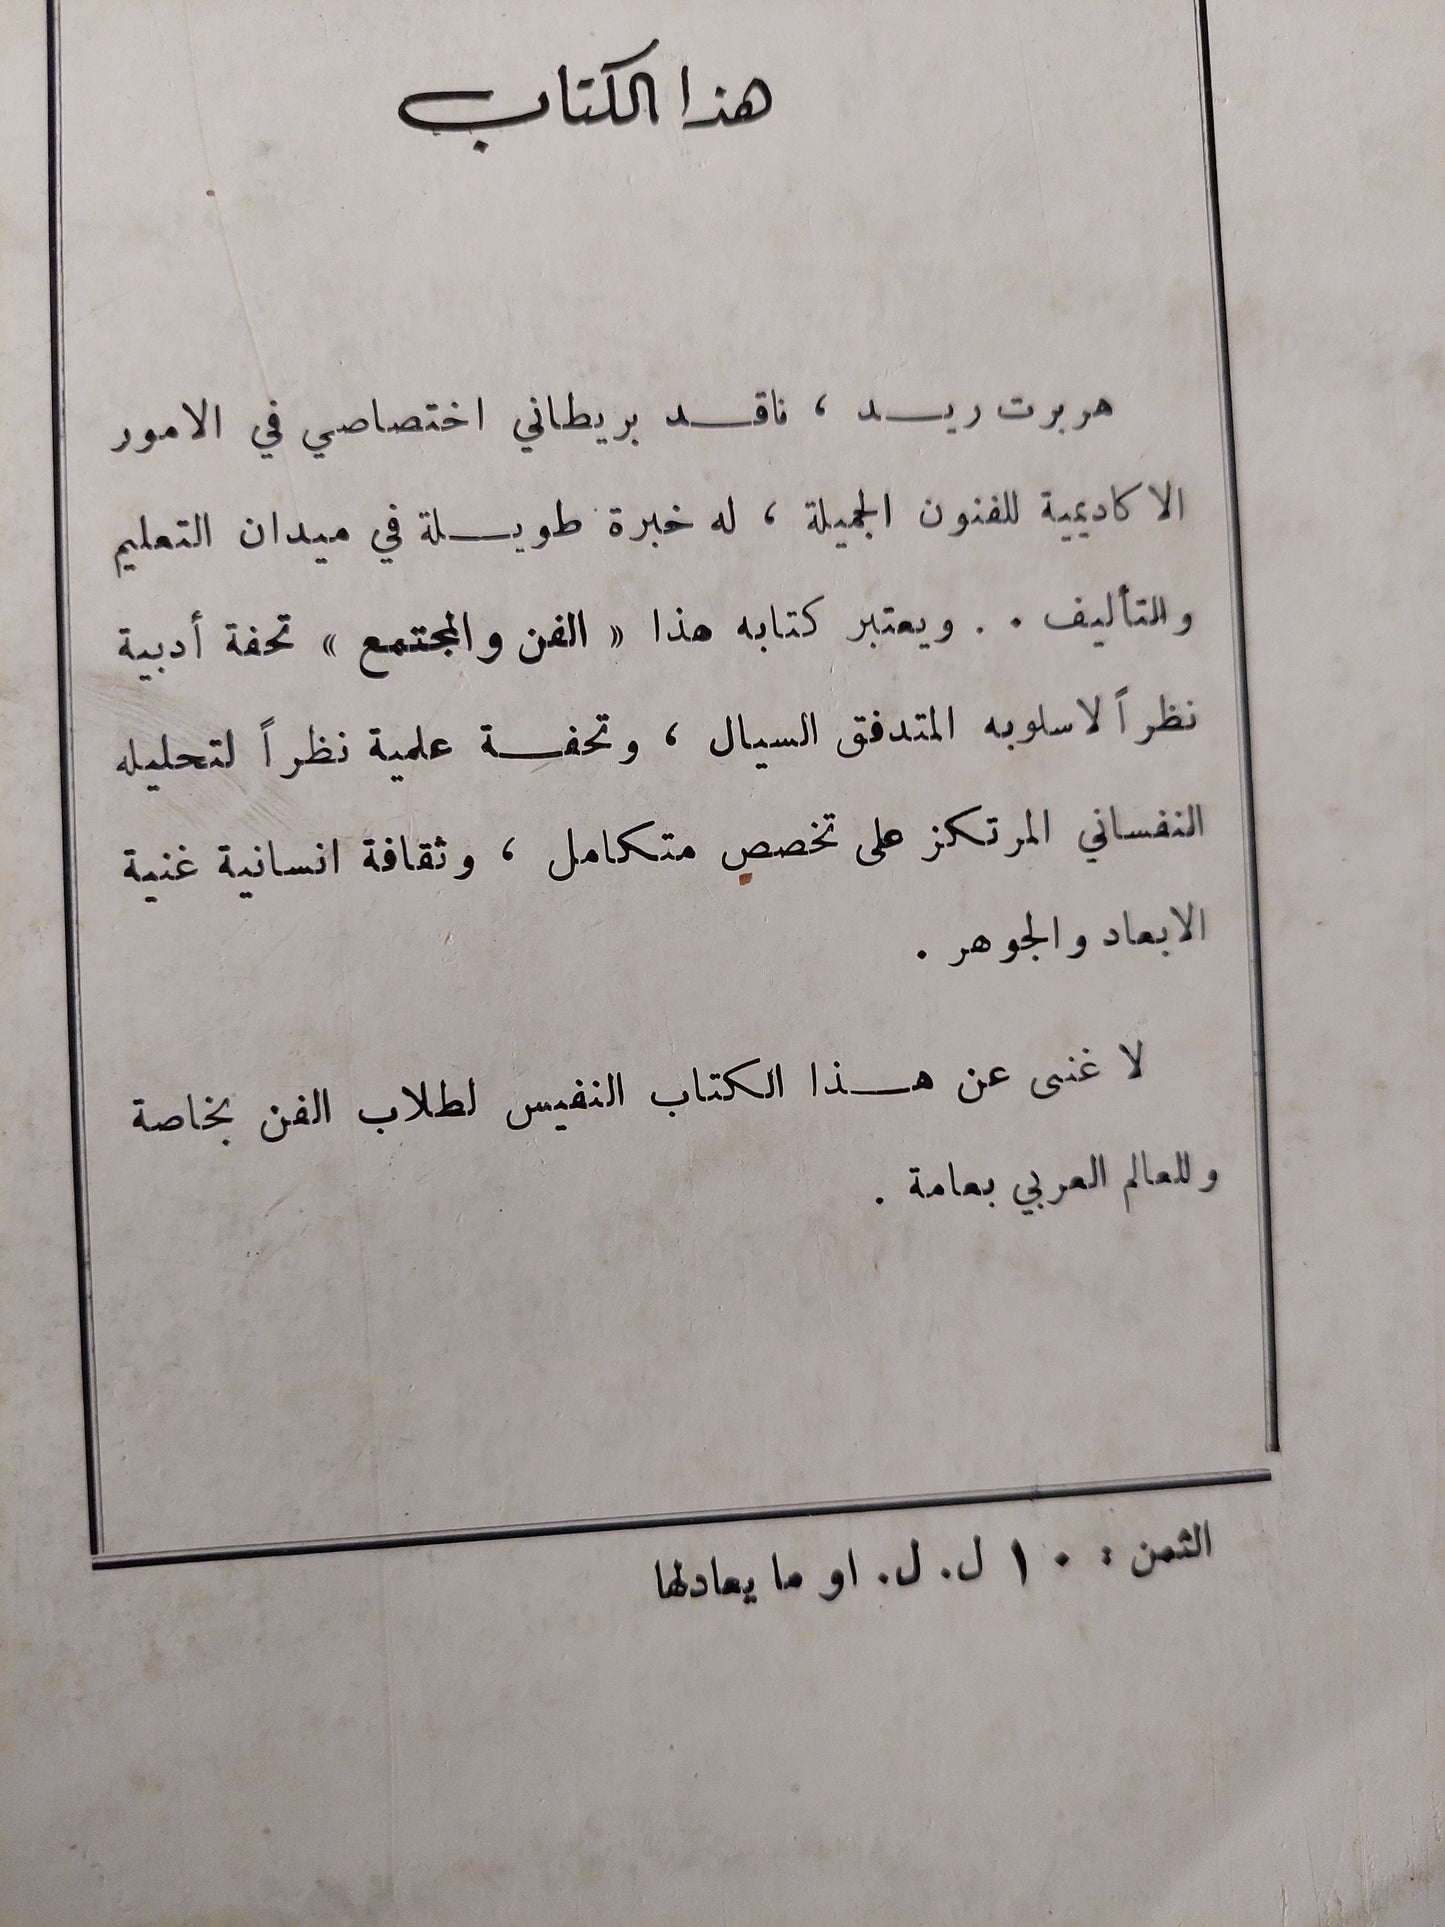 هذا الكتاب
هربرت ريـــد ، ناقـــد بريطاني اختصاصي في الامور
الاكاديمية للفنون الجميلة ، له خبرة طويـــلة في ميدان التعليم
والتأليف . . ويعتبر كتابه هذا « الفن والمجتمع » تحفة أدبية
نظراً لاسلوبه المتدفق السيال ، وتحفـــة علمية نظراً لتحليله
النفساني المرتكز على تخصص متكامل ، وثقافة انسانية غنية
الابعاد والجوهر .
لا غنى عن هـــذا الكتاب النفيس لطلاب الفن بخاصة
وللعالم العربي بعامة .
الثمن : ١٠ ل. ل. او ما يعادلها